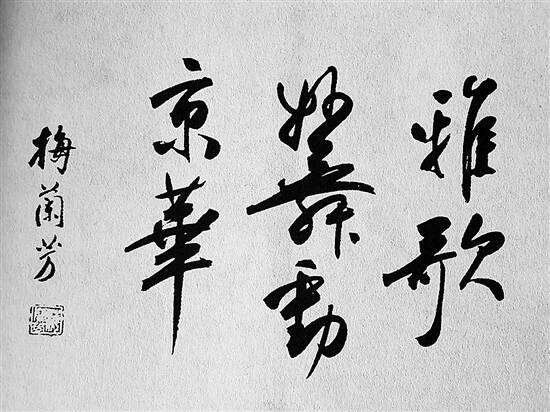 雅歌
妙舞動
京華
梅蘭芳